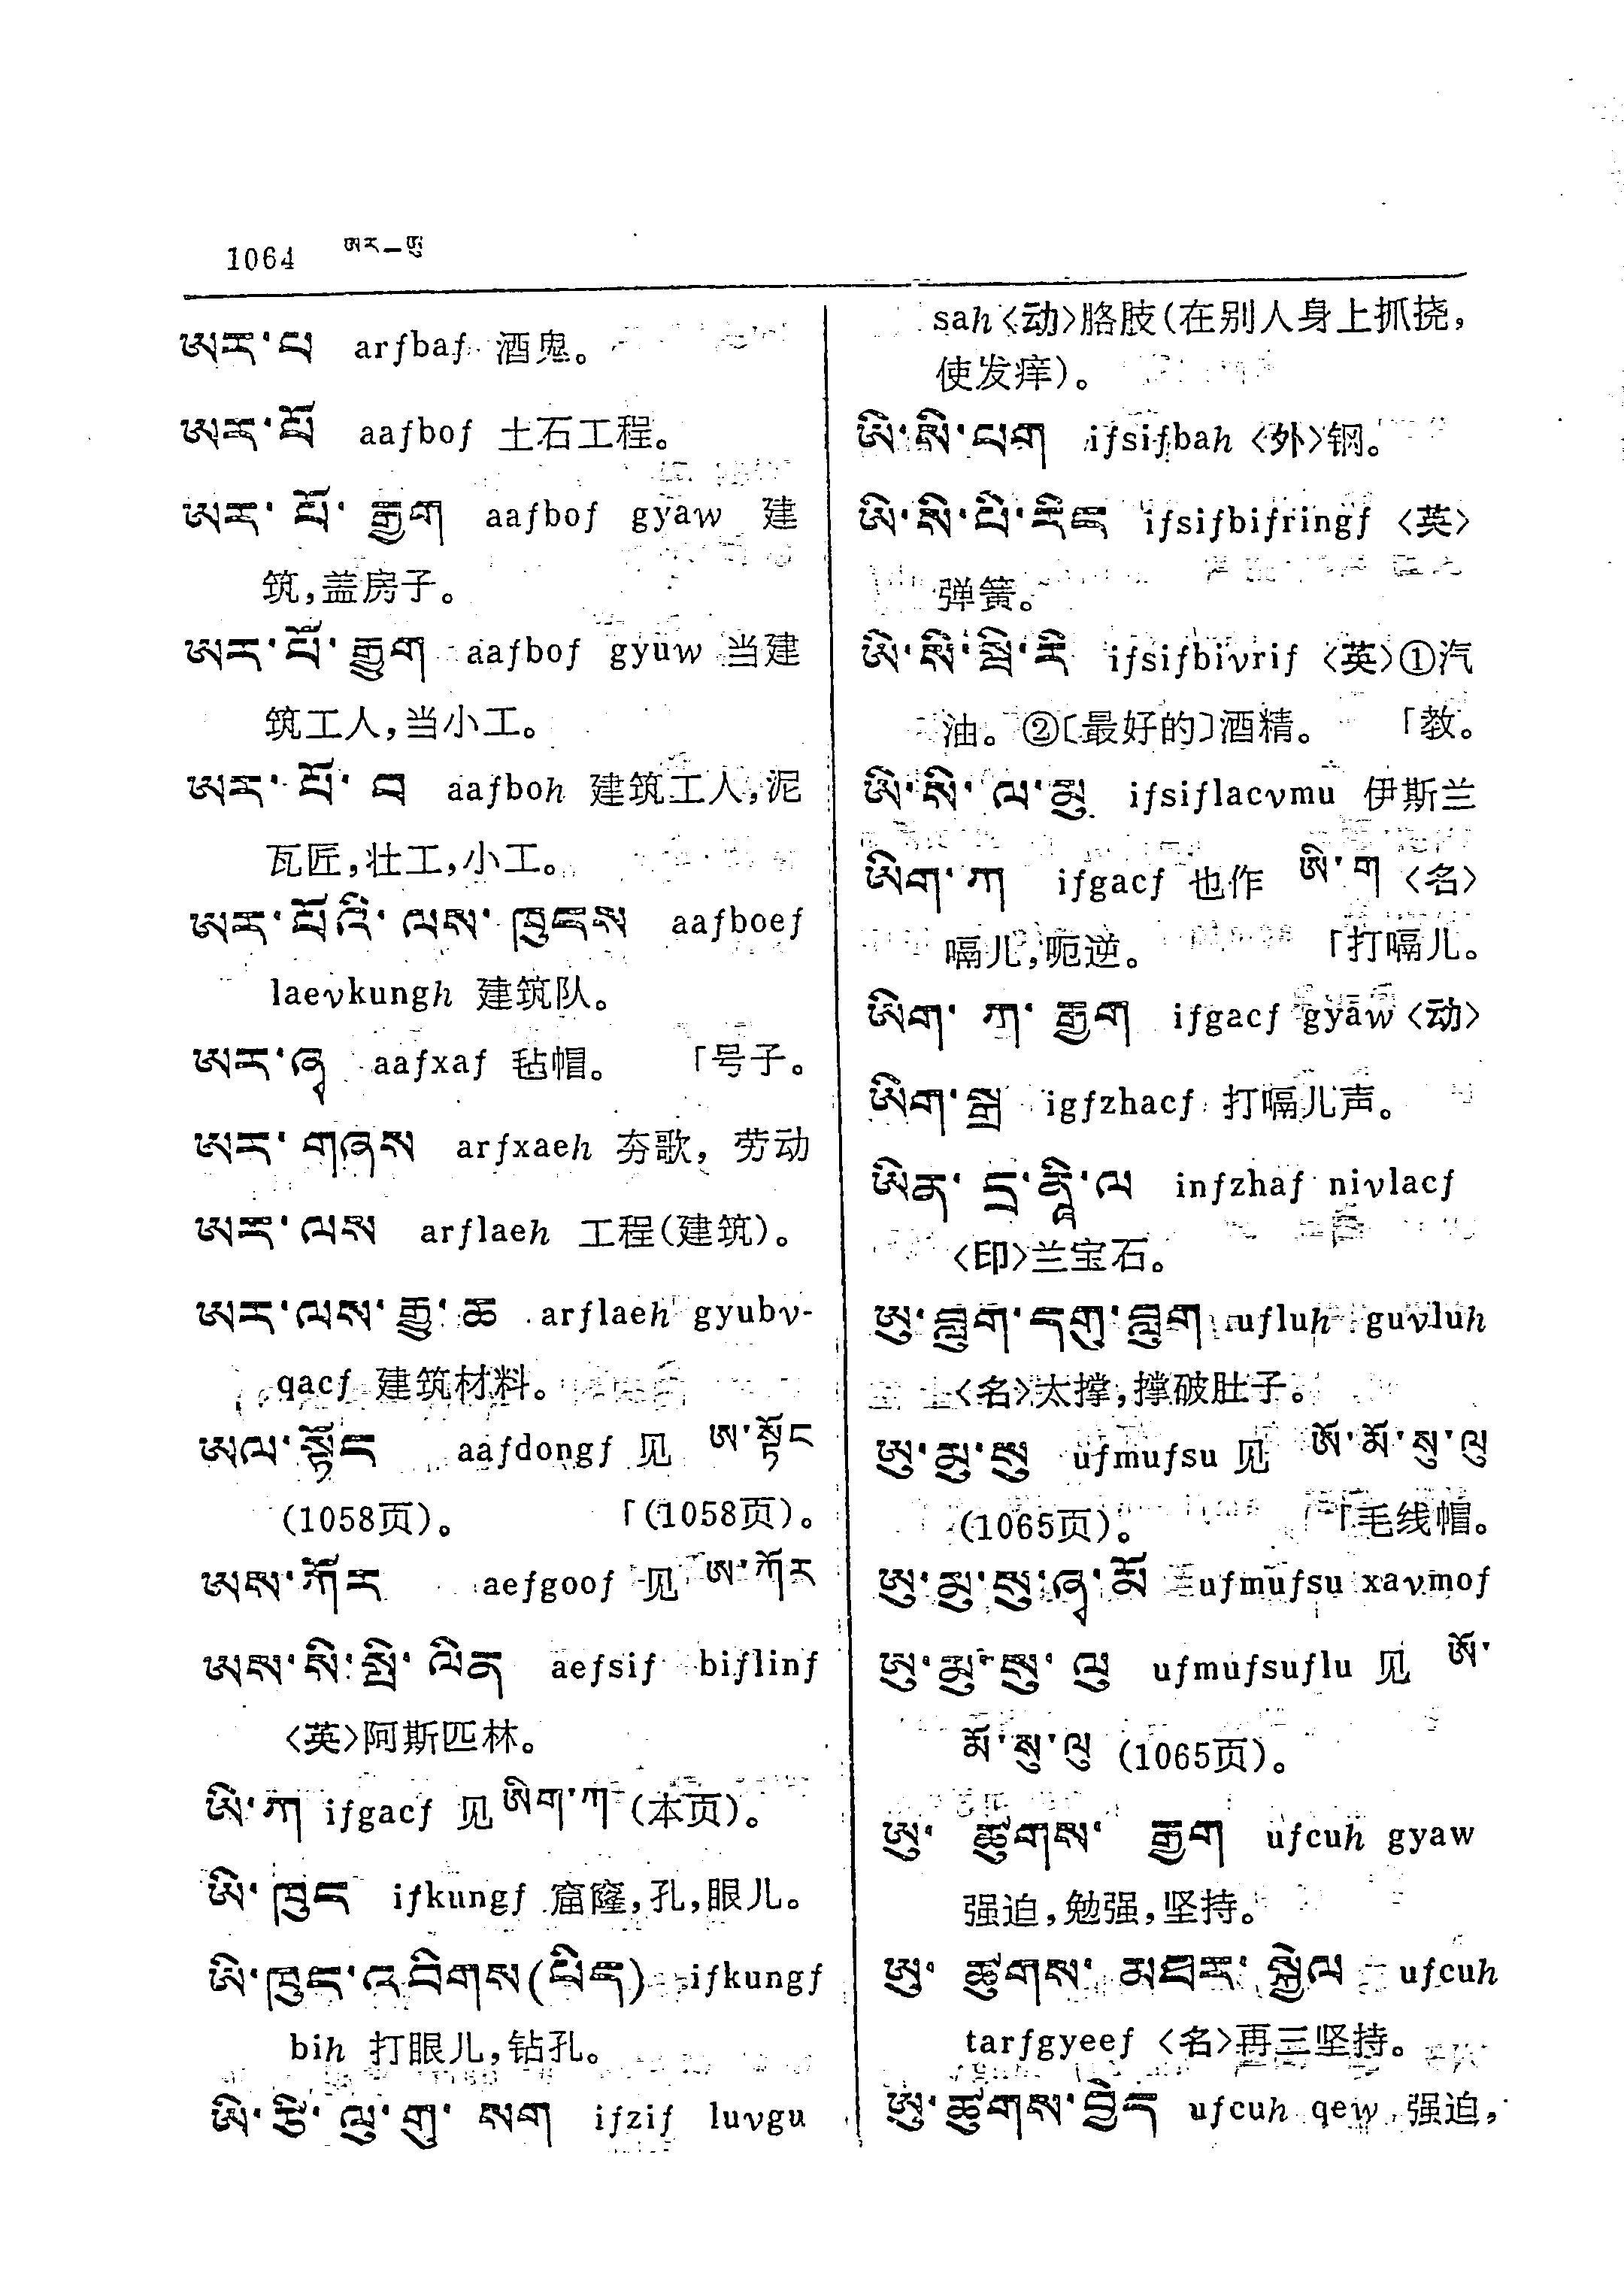 1064 ཨར—ཨུ
ཨར་པ arfbaf 酒鬼。
ཨར་པོ aafbof 土石工程。
ཨར་པོ་རྒྱག aafbof gyaw 建
筑,盖房子。
ཨར་པོ་རྒྱུག aafbof gyuw 当建
筑工人,当小工。
ཨར་པོ་བ aafboh 建筑工人,泥
瓦匠,壮工,小工。
ཨར་པོའི་ལས་ཁུངས aafboef
laevkungh 建筑队。
ཨར་ཞྭ aafxaf 毡帽。 「号子。
ཨར་གཞས arfxaeh 夯歌, 劳动
ཨར་ལས arflaeh 工程(建筑)。
ཨར་ལས་རྒྱུ་ཆ arflaeh gyubv-
qacf 建筑材料。
ཨལ་སྟོང aafdongf 见 ཨ་སྟོང
(1058页)。 「(1058页)。
ཨས་ཀོར aefgoof 见 ཨ་ཀོར
ཨས་སི་སྤི་ལིན aefsif biflinf
〈英〉阿斯匹林。
ཨི་ཀ ifgacf 见 ཨིག་ཀ (本页)。
ཨི་ཁུང ifkungf 窟窿,孔,眼儿。
ཨི་ཁུང་འབིགས(ཕིང) ifkungf
bih 打眼儿,钻孔。
ཨི་ཙི་ལུ་གུ་སག ifzif luvgu
sah〈动〉胳肢(在别人身上抓挠,
使发痒)。
ཨི་སི་པག ifsifbah〈外〉钢。
ཨི་སི་པི་རིང ifsifbifringf〈英〉
弹簧。
ཨི་སི་སྦི་རི ifsifbivrif〈英〉①汽
油。②〔最好的〕酒精。 「教。
ཨི་སི་ལ་མུ ifsiflacvmu 伊斯兰
ཨིག་ཀ ifgacf 也作 ཨི་ག〈名〉
嗝儿,呃逆。 「打嗝儿。
ཨིག་ཀ་རྒྱག ifgacf gyaw〈动〉
ཨིག་སྒྲ igfzhacf 打嗝儿声。
ཨིན་དྲ་ནཱི་ལ infzhaf nivlacf
〈印〉兰宝石。
ཨུ་བླུག་དགུ་བླུག ufluh guvluh
〈名〉太撑,撑破肚子。
ཨུ་མུ་སུ ufmufsu 见 ཨོ་མོ་སུ་ལུ
(1065页)。 「毛线帽。
ཨུ་མུ་སུ་ཞྭ་མོ ufmufsu xavmof
ཨུ་མུ་སུ་ལུ ufmufsuflu 见 ཨོ་
མོ་སུ་ལུ (1065页)。
ཨུ་ཚུགས་རྒྱག ufcuh gyaw
强迫,勉强,坚持。
ཨུ་ཚུགས་མཐར་སྐྱེལ ufcuh
tarfgyeef〈名〉再三坚持。
ཨུ་ཚུགས་བྱེད ufcuh qew 强迫,